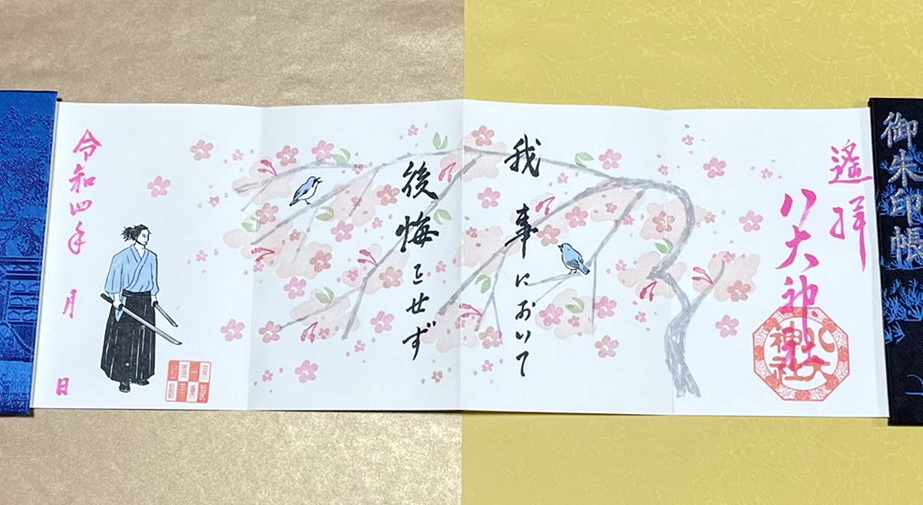 御朱印帳
遥拝
八大神社
我事において
後悔をせず
令和四年 月 日